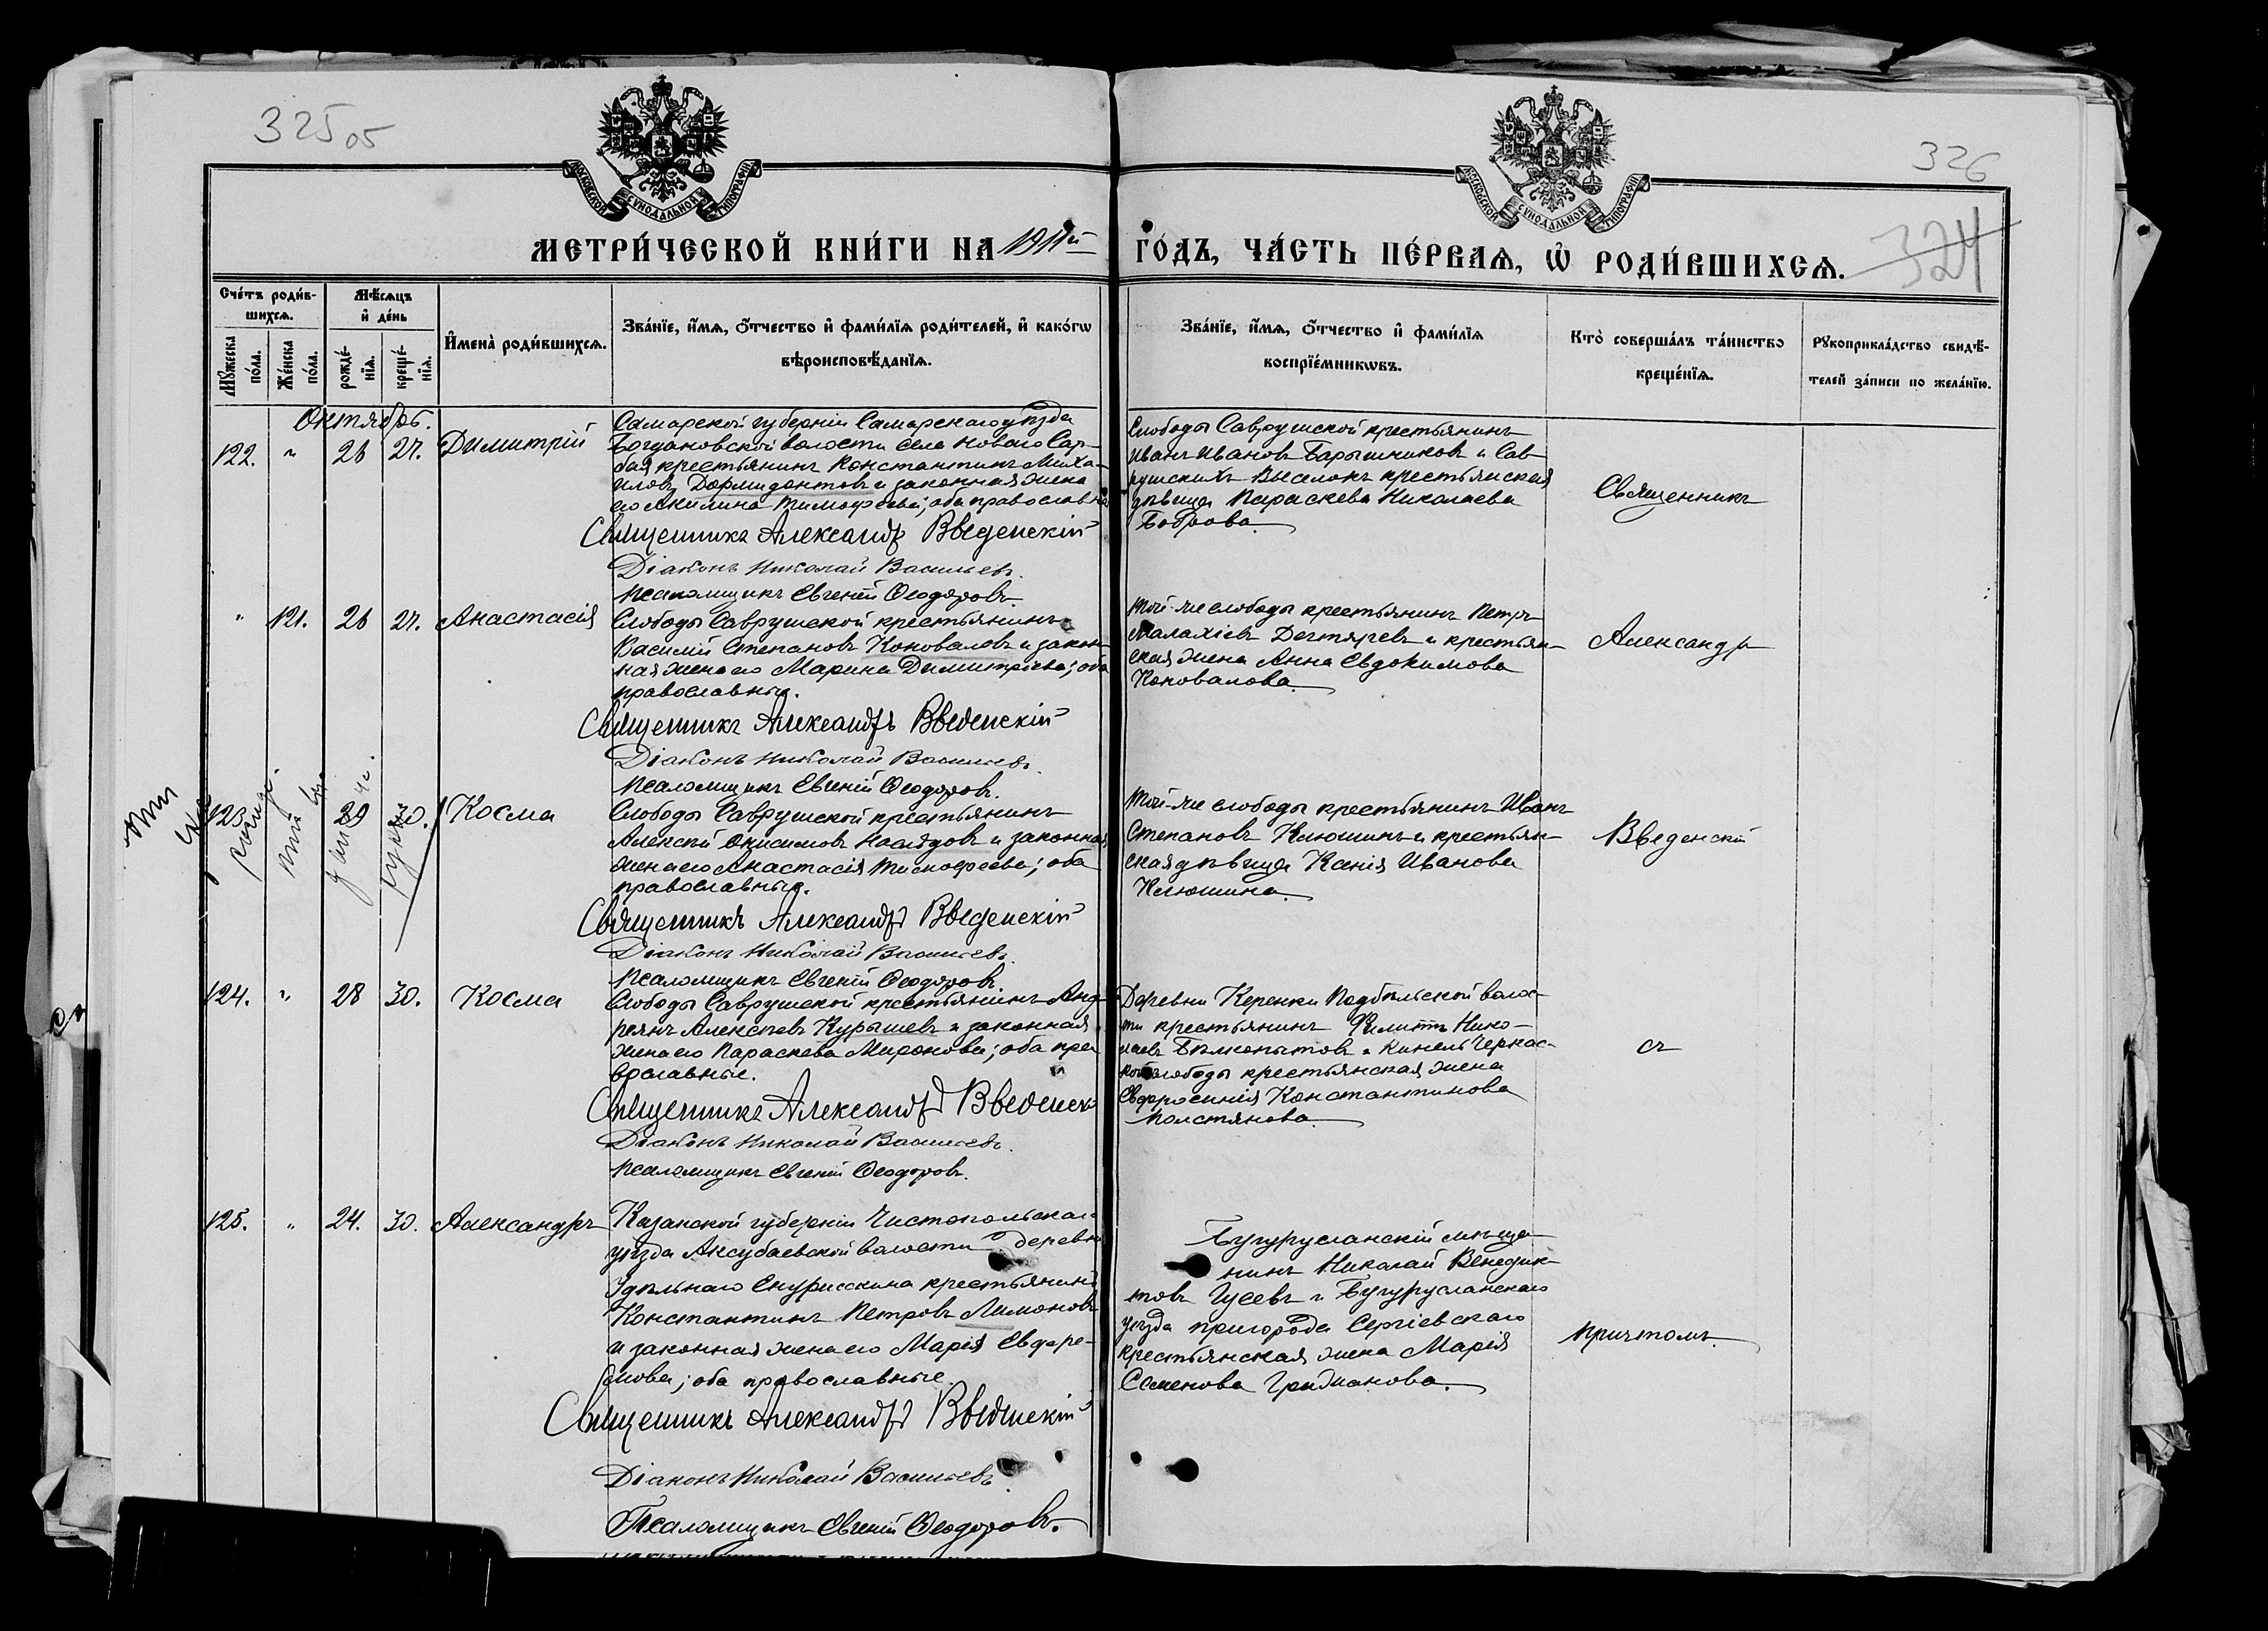 325 об
326
324
МОСКОВСКОЙ СѴНОДАЛЬНОЙ ТИПОГРАФІИ
МОСКОВСКОЙ СѴНОДАЛЬНОЙ ТИПОГРАФІИ
МЕТРИ́ЧЕСКОЙ КНИ́ГИ НА 1911й
ГО́ДЪ, ЧА́СТЬ ПЕ́РВАѦ, Ѡ҆ РОДИ́ВШИХСѦ.
Сче́тъ роди́в-
шихсѧ.
Мꙋ́жеска по́ла.
Же́нска по́ла.
Мѣ́сѧцъ
и҆ де́нь
рожде́-
нїѧ.
креще́-
нїѧ.
И҆мена̀ роди́вшихсѧ.
Зва́нїе, и҆́мѧ, ѻ҆́тчество и҆ фами́лїѧ роди́телей, и҆ како́гѡ
вѣроисповѣ́данїѧ.
Зва́нїе, и҆́мѧ, ѻ҆́тчество и҆ фами́лїѧ
воспрїе́мникѡвъ.
Кто̀ соверша́лъ та́инство
креще́нїѧ.
Рꙋкоприкла́дство свидѣ́-
телей за́писи по жела́нїю.
Октябрь.
122. " 26 27. Димитрій
Самарской губерніи Самарскаго уѣзда
Богдановской волости села Новаго Сар-
бая крестьянинъ Константинъ Миха-
иловъ Дормидонтовъ и законная жена
его Акилина Тимофеева; оба православные
Священникъ Александръ Введенскій
Діаконъ Николай Васильевъ.
Псаломщикъ Евгеній Ѳеодоровъ.
Слободы Саврушской крестьянинъ
Иванъ Ивановъ Барышниковъ и Сав-
рушскихъ Выселокъ крестьянская
дѣвица Параскева Николаева
Боброва.
Священникъ
" 121. 26 27. Анастасія
Слободы Саврушской крестьянинъ
Василій Степановъ Коноваловъ и закон-
ная жена его Марина Димитріева; оба
православные.
Священникъ Александръ Введенскій
Діаконъ Николай Васильевъ.
Псаломщикъ Евгеній Ѳеодоровъ.
Той-же слободы крестьянинъ Петръ
Малахіевъ Дегтяревъ и крестьян-
ская жена Анна Евдокимова
Коновалова.
Александръ
123. 29 30. Косма
Слободы Саврушской крестьянинъ
Алексій Онисимовъ и законная
жена его Анастасія Тимофеева; оба
православные.
Священникъ Александръ Введенскій
Діаконъ Николай Васильевъ.
Псаломщикъ Евгеній Ѳеодоровъ.
Той-же слободы крестьянинъ Иванъ
Степановъ Клюшинъ и крестьян-
ская дѣвица Ксенія Иванова
Клюшина.
Введенскій
124. " 28 30. Косма
Слободы Саврушской крестьянинъ Анд-
реянъ Алексѣевъ Курышевъ и законная
жена его Параскева Миронова; оба пра-
вославные.
Священникъ Александръ Введенскій
Діаконъ Николай Васильевъ.
Псаломщикъ Евгеній Ѳеодоровъ.
Деревни Керенки Подбѣльской волос-
ти крестьянинъ Филиппъ Нико-
лаевъ Бѣлкопытовъ и Кинель Черкас-
кой слободы крестьянская жена
Евфросинія Константинова
Толстянова.
съ
125. " 24. 30. Александръ
Казанской губерніи Чистопольскаго
уѣзда Аксубаевской волости деревни
Удѣльнаго Енорускина крестьянинъ
Константинъ Петровъ Лимоновъ
и законная жена его Марія Евфре-
мова; оба православные.
Священникъ Александръ Введенскій
Діаконъ Николай Васильевъ
Псаломщикъ Евгеній Ѳеодоровъ.
Бугурусланскій мѣща-
нинъ Николай Венедик-
товъ Гусевъ и Бугурусланскаго
уѣзда пригорода Сергіевскаго
крестьянская жена Марія
Семенова Гридманова.
причтомъ.